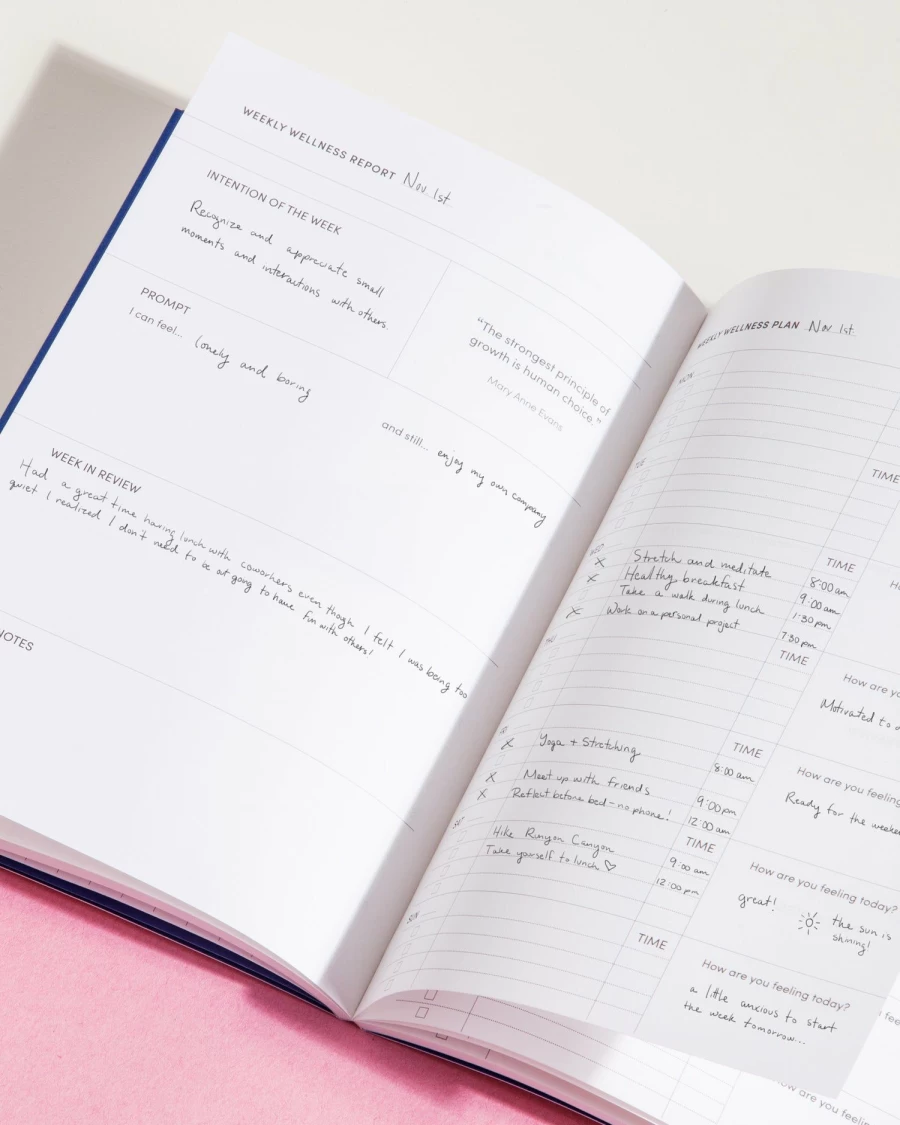 WEEKLY WELLNESS REPORT Nov 1st
INTENTION OF THE WEEK
Recognize and appreciate small
moments and interactions with others.
"The strongest principle of
growth is human choice."
Mary Anne Evans
PROMPT
I can feel... lonely and boring
and still... enjoy my own company
WEEK IN REVIEW
Had a great time having lunch with coworkers even though I felt I was being too
quiet I realized I don't need to be out going to have
fun with others!
NOTES
WEEKLY WELLNESS PLAN Nov 1st
MON
TIME
TUE
TIME
WED
X Stretch and meditate 8:00 am
X Healthy breakfast 9:00 am
Take a walk during lunch 1:30 pm
X Work on a personal project 7:30 pm
TIME
How are
Motivated to
TIME
X Yoga + Stretching 8:00 am
X Meet up with friends 9:00 pm
X Reflect before bed - no phone! 12:00 am
How are you feeling
Ready for the
SAT
TIME
Hike Runyon Canyon 9:00 am
Take yourself to lunch ♡ 12:00 pm
How are you feeling today?
great! the sun is
shining!
SUN
TIME
How are you feeling today?
a little anxious to start
the week tomorrow...
how are you feelin